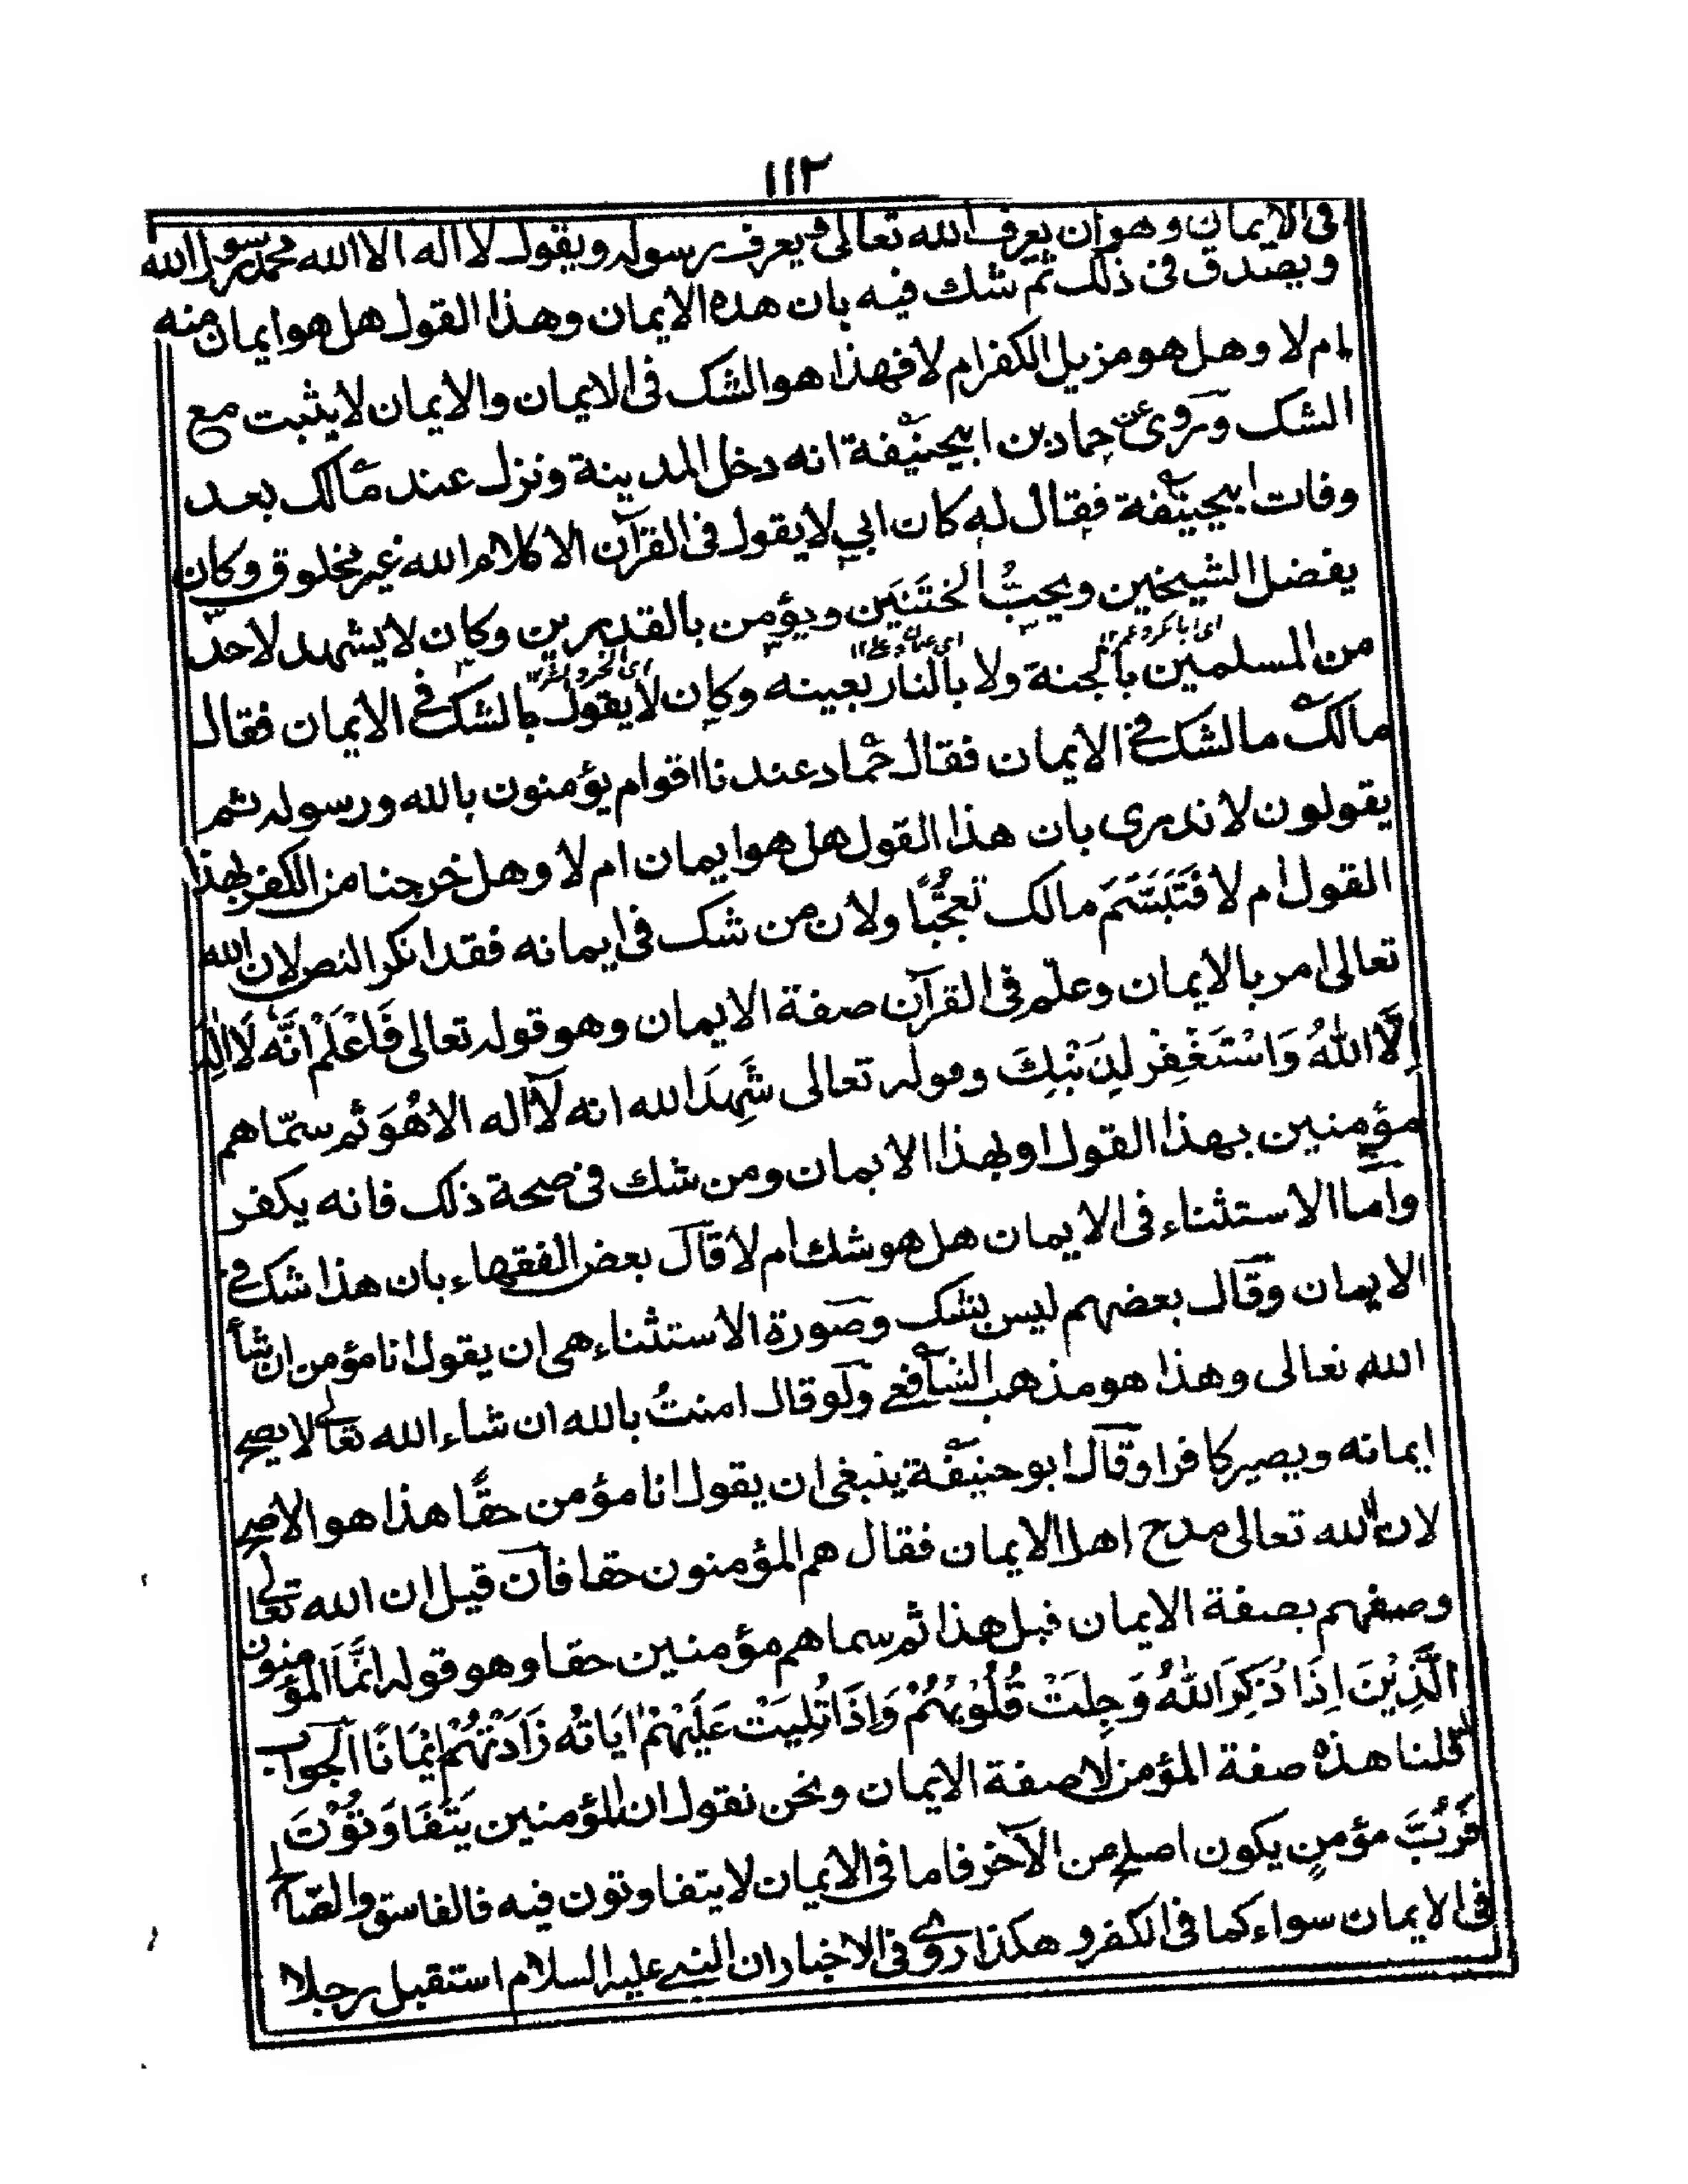 ١١٢
فى الايمان وهوان يعرف الله تعالى ويعرف رسوله ويقول لا اله الا الله محمد رسول الله
ويصدق فى ذلك ثم شك فيه بان هذه الايمان وهذا القول هل هو ايمان منه
ام لا وهل هو مزيل الكفر ام لا فهذا هو الشك فى الايمان والايمان لا يثبت مع
الشك وروى عن حماد بن ابيحنيفة انه دخل المدينة ونزل عند مالك بعد
وفات ابيحنيفة فقال له كان ابي لا يقول فى القرآن الا كلام الله غير مخلوق وكان
يفضل الشيخين ويحبُّ الختَنَين ويؤمن بالقدرين وكان لا يشهد لاحد
من المسلمين بالجنة ولا بالنار بعينه وكان لا يقول بالشك فى الايمان فقال
مالك ما الشك فى الايمان فقال حماد عندنا اقوام يؤمنون بالله ورسوله ثم
يقولون لا ندرى بان هذا القول هل هو ايمان ام لا وهل خرجنا من الكفر بهذا
القول ام لا فَتَبَسَّمَ مالك تعجُّبًا ولان من شك فى ايمانه فقد انكر النص لان الله
تعالى امر بالايمان وعلّم فى القرآن صفة الايمان وهو قوله تعالى فَاعْلَمْ اَنَّهٗ لَا اِلٰهَ
اِلَّا اللّٰهُ وَاسْتَغْفِرْ لِذَنْبِكَ وقوله تعالى شَهِدَ الله انه لا اله الا هُوَ ثم سمّاهم
مؤمنين بهذا القول او بهذا الايمان ومن شك فى صحة ذلك فانه يكفر
واما الاستثناء فى الايمان هل هو شك ام لا قال بعض الفقهاء بان هذا شك فى
الايمان وقال بعضهم ليس بشك وصورة الاستثناء هى ان يقول انا مؤمن ان شأ
الله تعالى وهذا هو مذهب الشافعى ولو قال امنتُ بالله ان شاء الله تعالى لا يصح
ايمانه ويصير كافرا وقال ابو حنيفة ينبغى ان يقول انا مؤمن حقًّا هذا هو الاصح
لان الله تعالى مدح اهل الايمان فقال هم المؤمنون حقا فان قيل ان الله تعالى
وصفهم بصفة الايمان قبل هذا ثم سماهم مؤمنين حقا وهو قوله اِنَّمَا المؤمنون
الَّذِيْنَ اِذَا ذُكِرَ اللّٰهُ وَجِلَتْ قُلُوْبُهُمْ وَاِذَا تُلِيَتْ عَلَيْهِمْ اٰيَاتُه زَادَتْهُمْ اِيْمَانًا الجواب
قلنا هذه صفة المؤمن لا صفة الايمان ونحن نقول ان المؤمنين يَتَفَاوَتُوْنَ
فَرُبَّ مؤمنٍ يكون اصلح من الآخر فاما فى الايمان لا يتفاوتون فيه فالفاسق والصّالح
فى الايمان سواء كما فى الكفر وهكذا روى فى الاخبار ان النبى عليه السلام استقبل رجلا